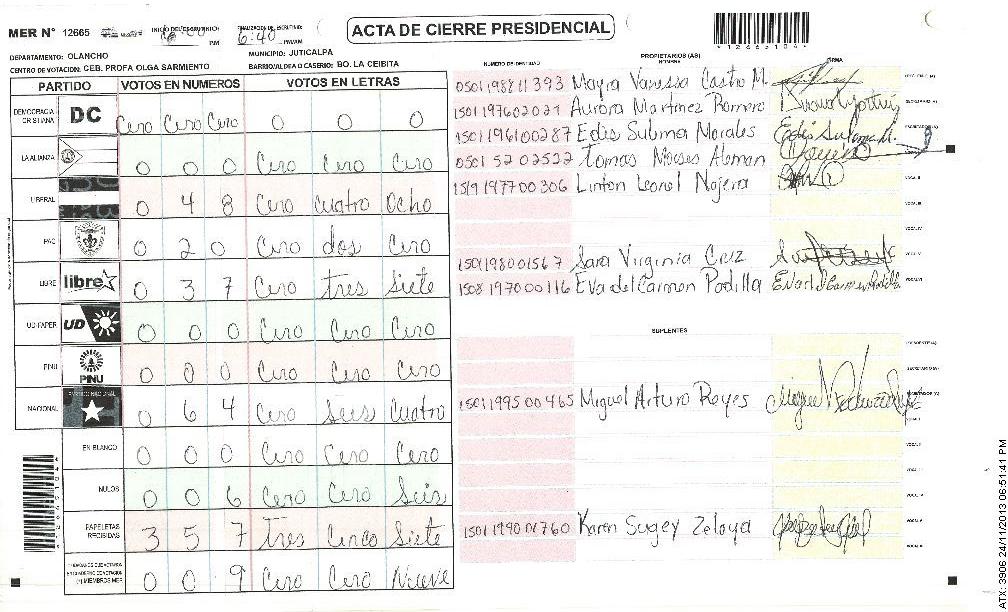 MER N° 12665
ACTA DE CIERRE PRESIDENCIAL
INICIO DEL ESCRUTINIO: PM
FINALIZACION DE ESCRUTINIO: 6:40 PM/AM
DEPARTAMENTO: OLANCHO
MUNICIPIO: JUTICALPA
CENTRO DE VOTACION: CEB. PROFA OLGA SARMIENTO
BARRIO/ALDEA O CASERIO: BO. LA CEIBITA
PARTIDO VOTOS EN NUMEROS VOTOS EN LETRAS
DEMOCRACIA CRISTIANA DC Cero Cero Cero 0 0 0
LA ALIANZA 0 0 0 Cero Cero Cero
LIBERAL 0 4 8 Cero Cuatro Ocho
PAC 0 2 0 Cero dos Cero
LIBRE libre 0 3 7 Cero tres Siete
UD-FAPER UD 0 0 0 Cero Cero Cero
PINU PINU 0 0 0 Cero Cero Cero
NACIONAL PARTIDO NACIONAL 0 6 4 Cero Seis Cuatro
EN BLANCO 0 0 0 Cero Cero Cero
NULOS 0 0 6 Cero Cero Seis
PAPELETAS RECIBIDAS 3 5 7 Tres Cinco Siete
(*) MIEMBROS MER 0 0 9 Cero Cero Nueve
PROPIETARIOS (AS)
NUMERO DE IDENTIDAD NOMBRE FIRMA
0501198811393 Mayra Vanessa Castro M.
1501197602021 Aurora Martinez Romero
1501196100287 Edis Sulima Morales
Tomas Moises Aleman
1519197700306 Linton Leonel Najera
1501198001567 Sara Virginia Cruz
1508197000116 Eva del Carmen Padilla
SUPLENTES
1501199500465 Miguel Arturo Reyes
1501199001760 Karen Sugey Zelaya
ATX: 3906 24/11/2013 06:51:41 PM